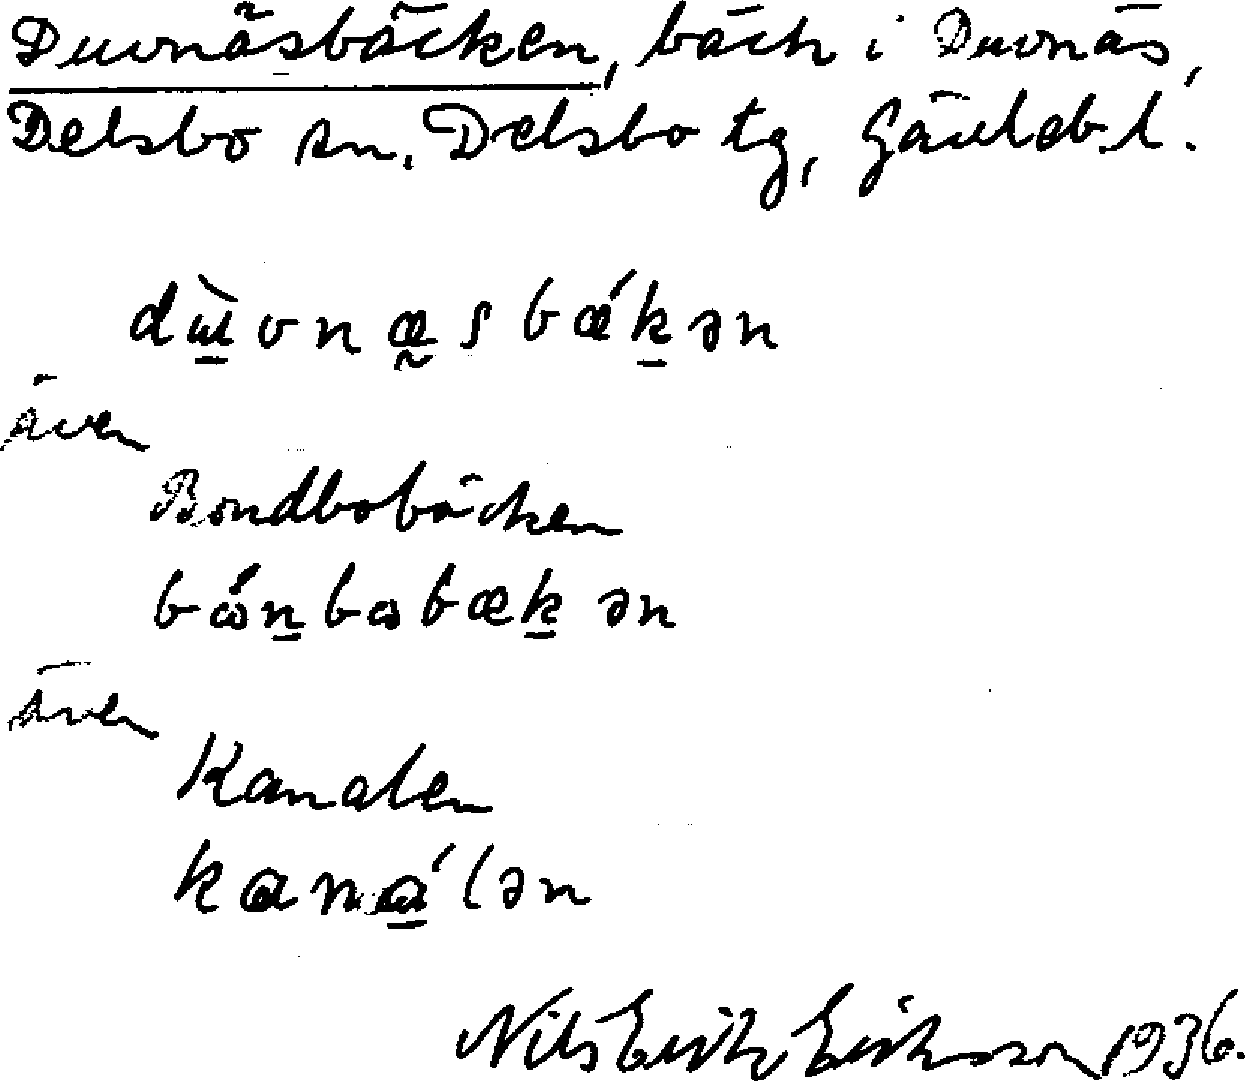 Duvnäsbäcken, bäck i Duvnäs,
Delsbo sn, Delsbo tg, Gävleb. l.
dɯ̱̀vnæ̰sbǽḵən
även
Bondbobäcken
bɷ́ṉbɷbæḵən
även
Kanalen
kaná̱lən
Nils Erik Eriksson 1936.